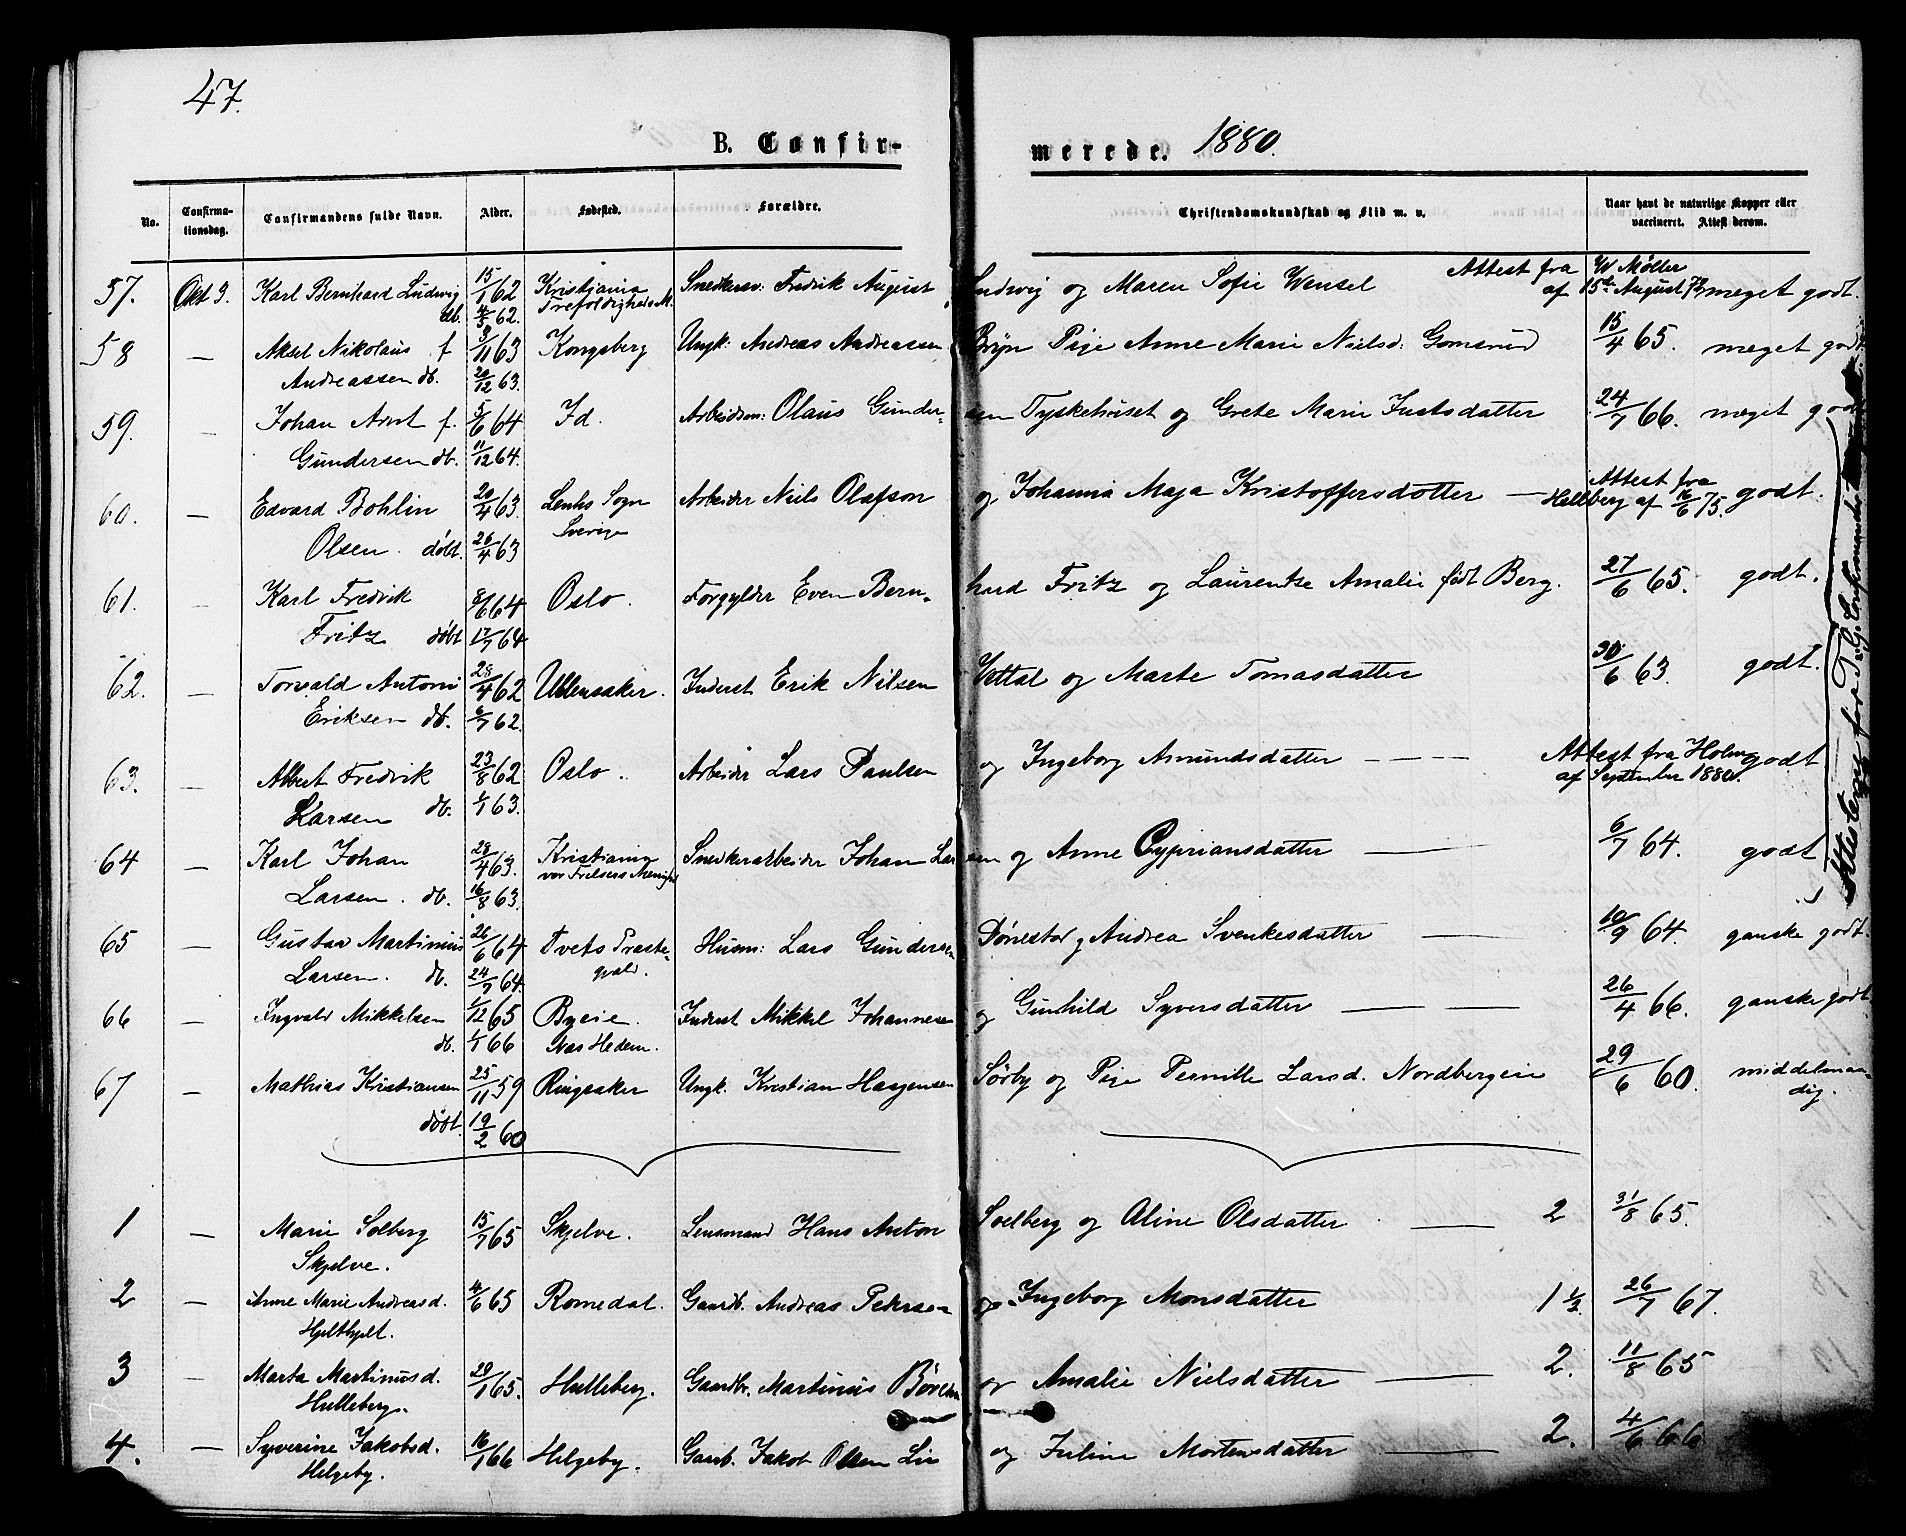 47.
B. Confir-merede. 1880.
No. Confirma-tionsdag. Confirmandens fulde Navn. Alder. Fødested. Forældre. Christendomskundskab og Flid m. v. Naar havt de naturlige Kopper eller vaccineret. Attest derom.
57. Okt 3. Karl Bernhard Ludvig 15/1 62 Kristiania Snedkersv: Fredrik August Ludvig og Maren Sofie Wensel Attest fra W Møller
db. 4/5 62. Trefoldigheds M. af 15de August 72 meget godt.
58 — Aksel Nikolaus f 9/11 63 Kongsberg Ungk: Andreas Andreassen Bryn Pige Anne Marie Nielsd: Gomsrud 15/4 65. meget godt
Andreassen db. 20/12 63.
59. — Johan Arnt f. 5/6 64 Id. Arbeidsm: Olaus Gunder-sen Tyskehuset og Grete Marie Justsdatter 24/7 66. meget godt
Gundersen db. 11/12 64.
60. — Edvard Bohlin 20/4 63. Lenhs Sogn Arbeider Niels Olafson og Johanna Maja Kristoffersdotter — Attest fra
Olsen. døbt. 26/4 63 Sverige Hellberg af 16/6 75. godt.
61. — Karl Fredrik 8/6 64 Oslo. Forgylder Even Bern-hard Fritz og Laurentse Amalie født Berg. 27/6 65. godt.
Fritz døbt 17/7 64
62. — Torvald Antoni 28/4 62 Ullensaker. Inderst Erik Nilsen Vettal og Marte Tomasdatter 30/6 63. godt.
Eriksen db. 6/7 62.
63. — Albert Fredrik 23/8 62 Oslo. Arbeider Lars Paulsen og Ingeborg Amundsdatter — Attest fra Holm godt
Larsen db. 1/1 63. af September 1880.
64 — Karl Johan 28/4 63. Kristiania Snedkerarbeider Johan Lar sen og Anne Cypriansdatter — 6/7 64. godt
Larsen. db. 16/8 63. vor Frelsers Menigh
65 — Gustav Martinius 26/6 64 Tvets Præste- Husm: Lars Gundersen Dønestad og Andrea Svenkesdatter — 10/9 64. ganske godt.
Larsen. db. 24/7 64. gjæld.
66 — Ingvald Mikkelsen 1/12 65 Byeie. Inderst Mikkel Johannesen og Gunhild Syversdatter — 26/4 66. ganske godt
db. 1/1 66 Næs Hedem.
67 — Mathias Kristiansen 25/11 59 Ringsaker Ungk. Kristian Haagensen Sørby og Pige Pernille Larsd. Nordbergeie 29/6 60. middelmaa-
døbt. 19/2 60 dig.
Attesterne for Tg. Confirmander
1 — Marie Solberg 15/7 65 Skjelve. Lensmand Hans Anton Soelberg og Aline Olsdatter — 2 31/8 65.
Skjelve.
2 — Anne Marie Andreasd. 4/6 65 Romedal. Gaardb. Andreas Petersen og Ingeborg Monsdatter 1 1/3 26/7 67.
Hjelthjelt.
3 — Marta Martinusd. 29/1 65. Hulleberg. Gaardbr. Martinus Børesen og Amalie Nielsdatter — 2. 11/8 65
Hulleberg.
4. — Syverine Jakobsd. 16/1 66 Helgeby. Gaarb. Jakob Olsen Lie og Juline Mortensdatter — 2. 4/6 66
Helgeby.